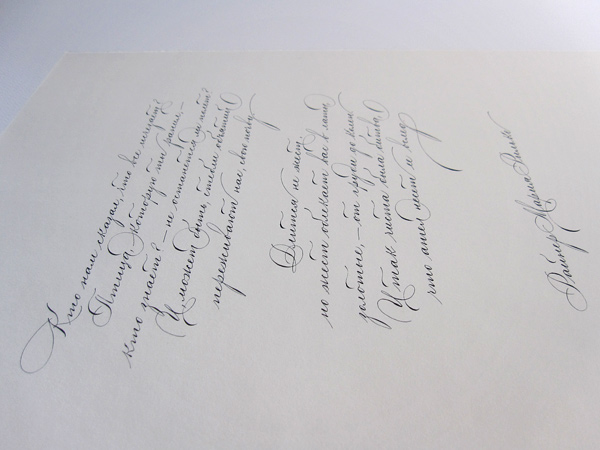 Кто нам сказал, что все исчезает?
Птица, которую ты ранил, –
кто знает? – не останется ли полёт?
И, может быть, стебли объятий
переживают нас, свою почву.
Длится не жест,
но жест облекает вас в латы
золотые, – от груди до колен.
И так чиста была битва,
что ангел несёт её вслед.
Райнер Мария Рильке